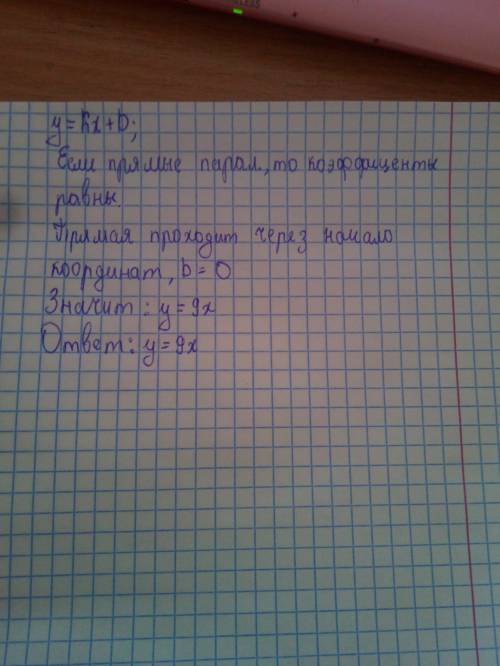 y=kx+b;
Если прямые парал., то коэффиценты
равны.
Прямая проходит через начало
координат, b=0
Значит: y=9x
Ответ: y=9x